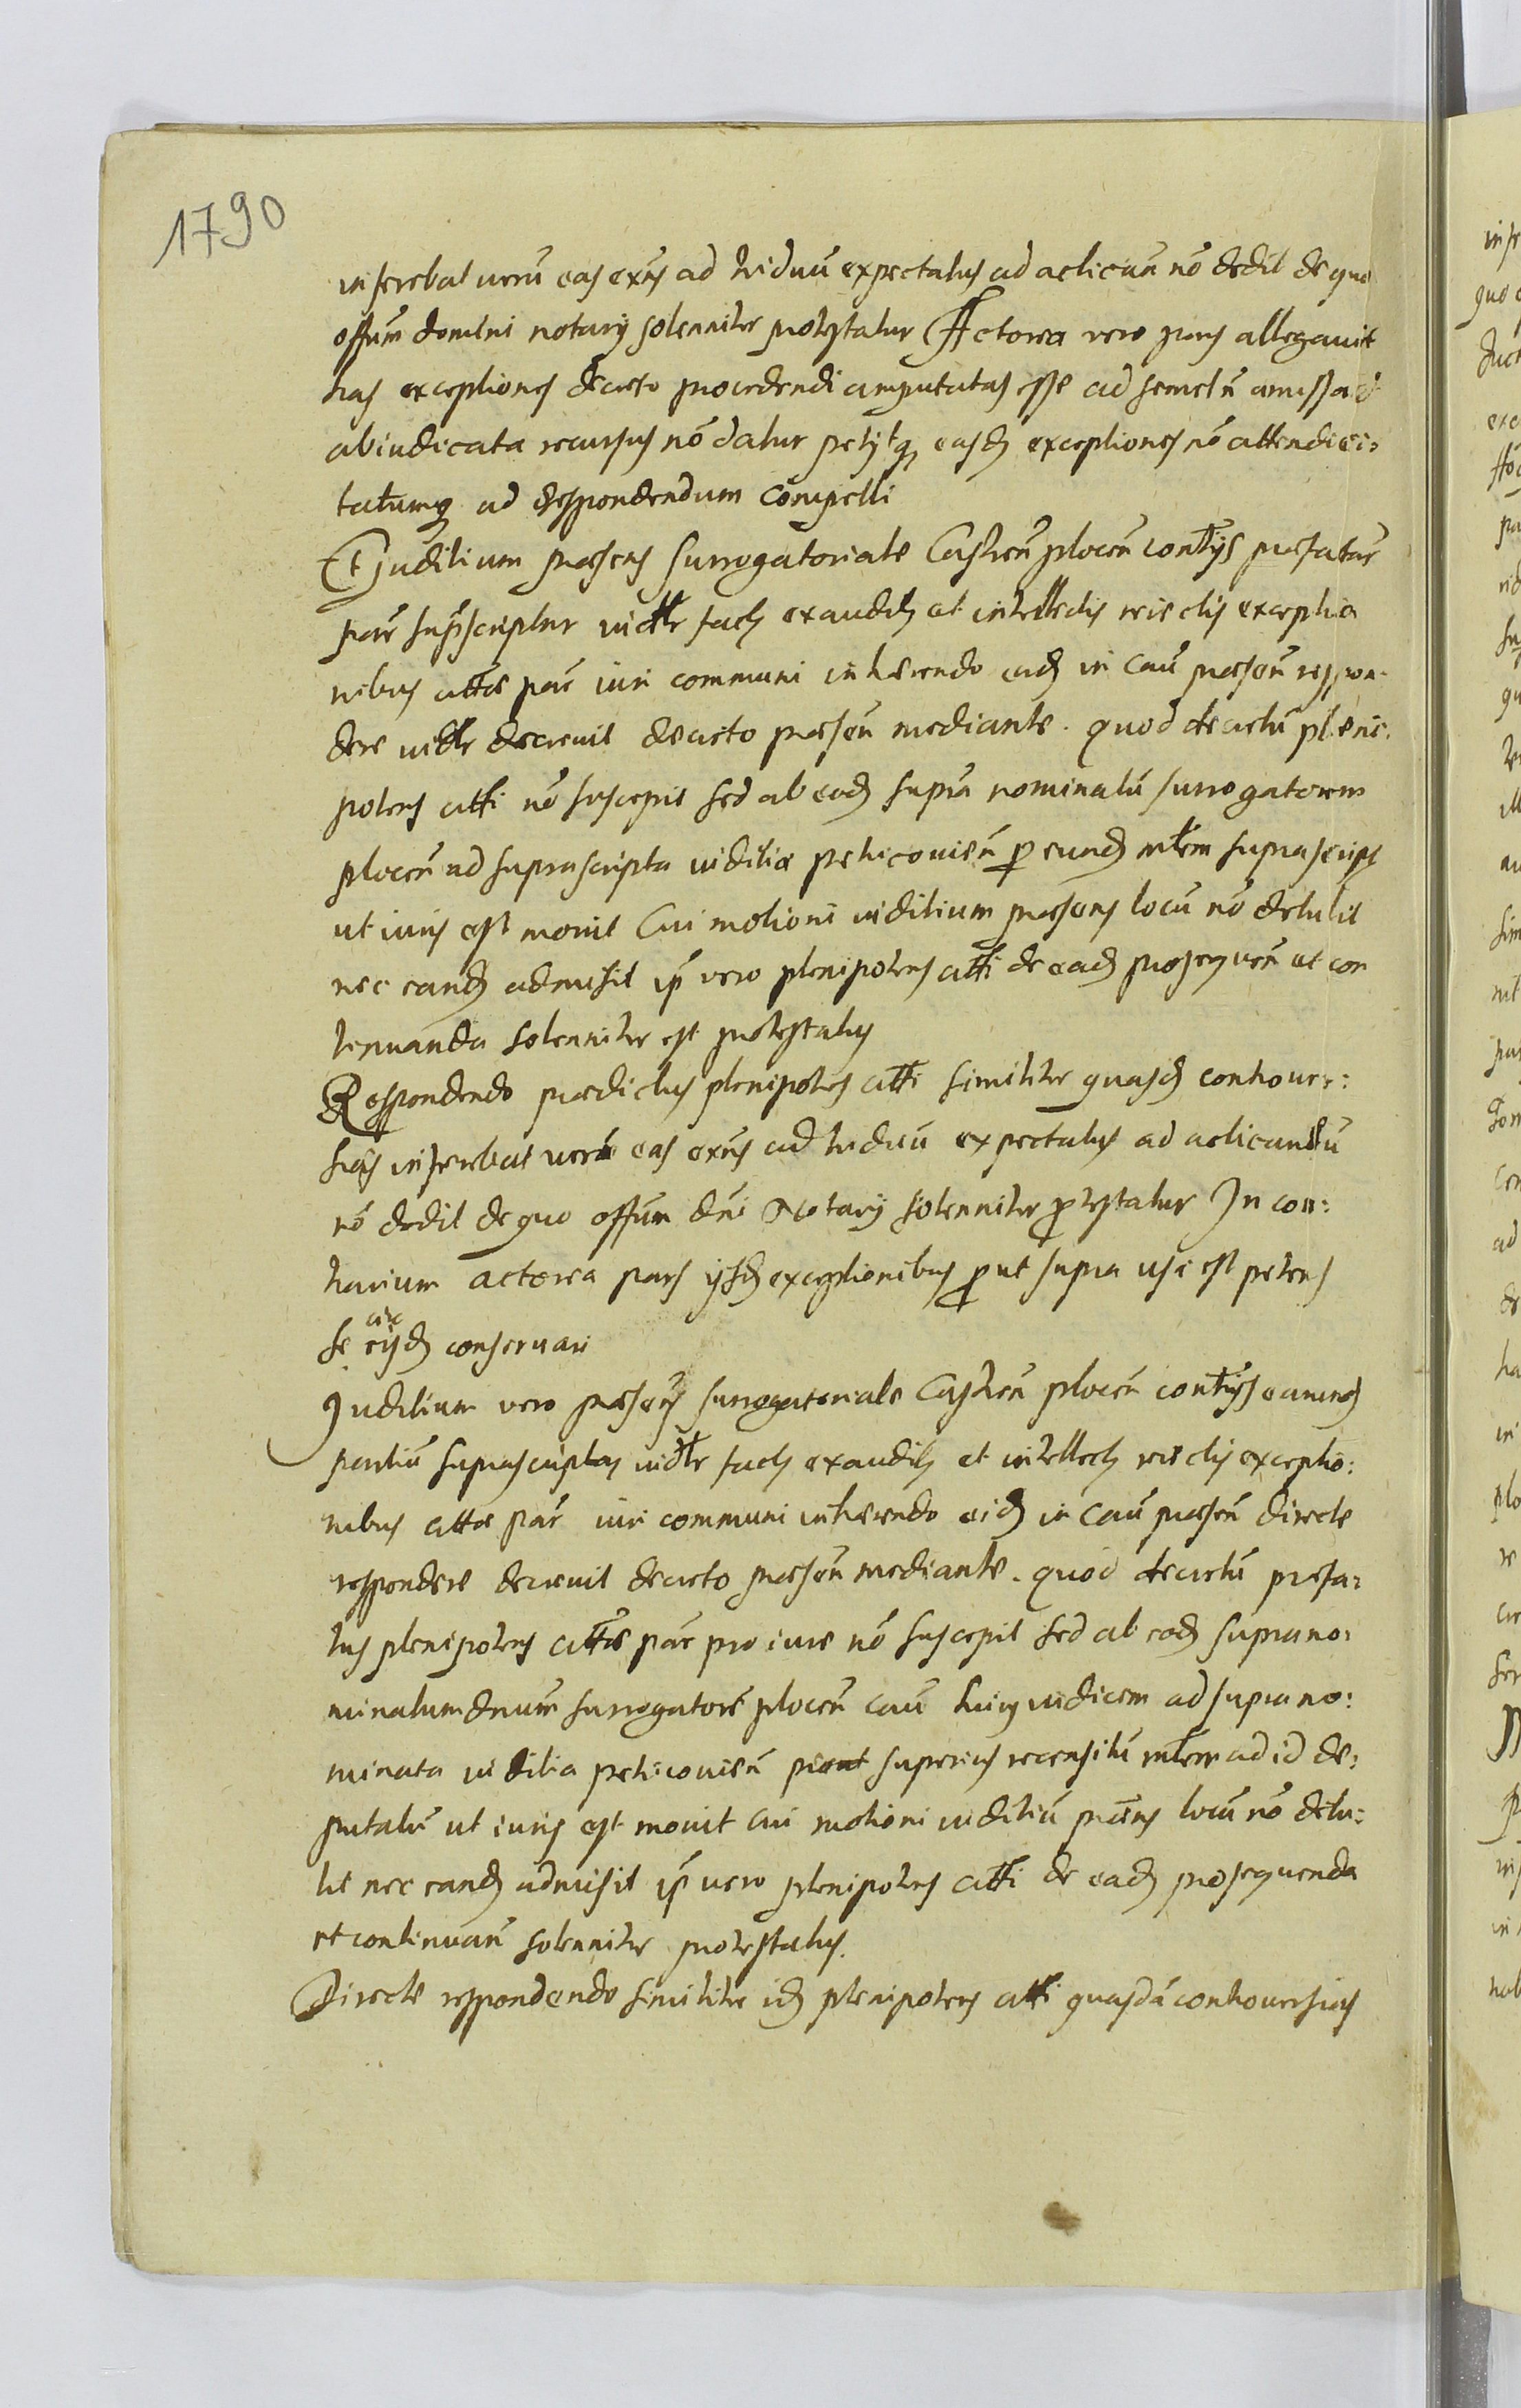 1790
inferebat verū eas exñs ad triduū expectatus ad acticań nō dedit de quo
offūm domini notarij solenniter protestatur Actorea vero pars allegavit
has exceptiones decreto procedendi amputatas esse ad semel ń amissa et
abiudicata recursus nō datur petijtq easdē exceptiones nō attendi ci:
tatumq ad respondendum compelli
Iuditium præsens surrogatoriale Castreń plocen contijs præfatar
par suprascriptur vidttr factis exauditis et intellectis reiectis exceptio
nibus cittæ par iuri communi inhærendo eidē in cau præseń respon:
dere vidttr decrevit decreto præseń mediante. quod decretū pleni:
potens citti nō suscepit sed ab eodē supra nominatū surrogatorem
plocen ad suprascripta iuditia petricovień p eundē mtem suprascript
ut iuris est movit Cui motioni iuditium præsens locū nō detulit
nec eandē admisit ip vero plenipotens citti de eadē prosequeń et con
tenuanda solenniter est protestatus
Respondendo prædictus plenipotens citti similiter quasdē controver:
sias inferebat verū eas exñs ad triduū expectatus ad acticandū
nō dedit de quo offūm dńi Notarij solenniter protestatur In con:
trarium actorea pars ijsdē exceptionibus prout supra usa est petens
se circ eijsdē conservari
Iuditium vero præsens surrogatoriale Castreń plocen contijs earundē
partiū suprascriptas vidttr factis exauditis et intellectis reiectis exceptio:
nibus cittæ par iuri communi inhærendo eidē in cau præseń directe
respondere decrevit decreto præseń mediante. quod decretū præfa:
tus plenipotens cittæ par pro iure nō suscepit sed ab eodē suprano:
minatum dnum surrogatorē plocen cau huius iudicem ad suprano:
minata iuditia petricovień prout superius recensitū mtem ad id de:
putatū ut iuris est movit cui motioni iuditiū præns locū nō detu:
lit nec eandē admisit ip vero plenipotens citti de eadē prosequenda
et continuań solenniter protestatus.
Directe respondendo similiter idē plenipotens citti quasdā controversias